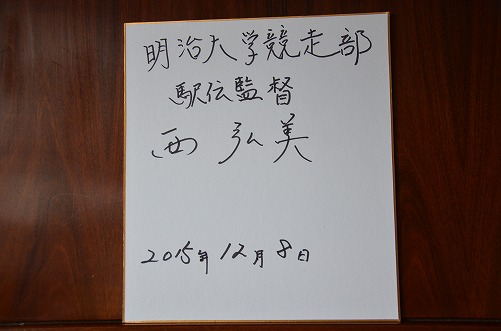 明治大学競走部
駅伝監督
西弘美
2015年12月8日